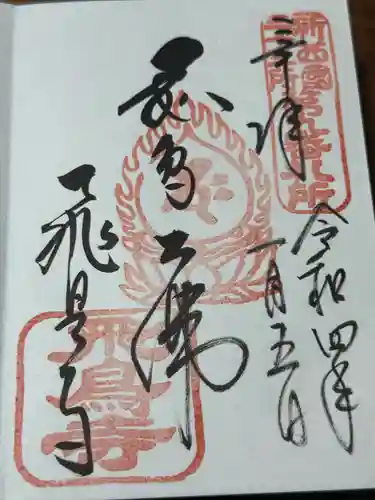 新西國霊場札所
奉拝
令和四年
一月五日
飛鳥大佛
飛鳥寺
飛鳥寺